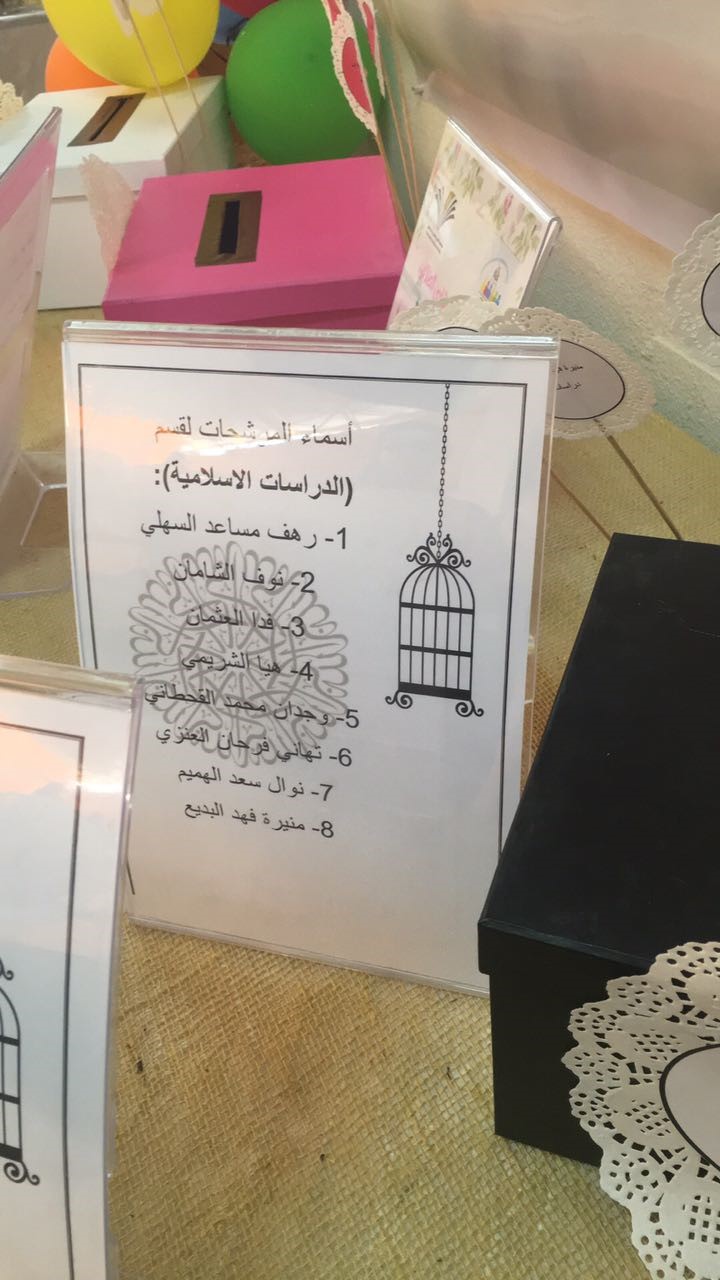 أسماء المرشحات لقسم
(الدراسات الاسلامية):
1- رهف مساعد السهلي
2- نوف الشامان
3- فدا العثمان
4- هيا الشريمي
5- وجدان محمد القحطاني
6- تهاني فرحان العنزي
7- نوال سعد الهميم
8- منيرة فهد البديع